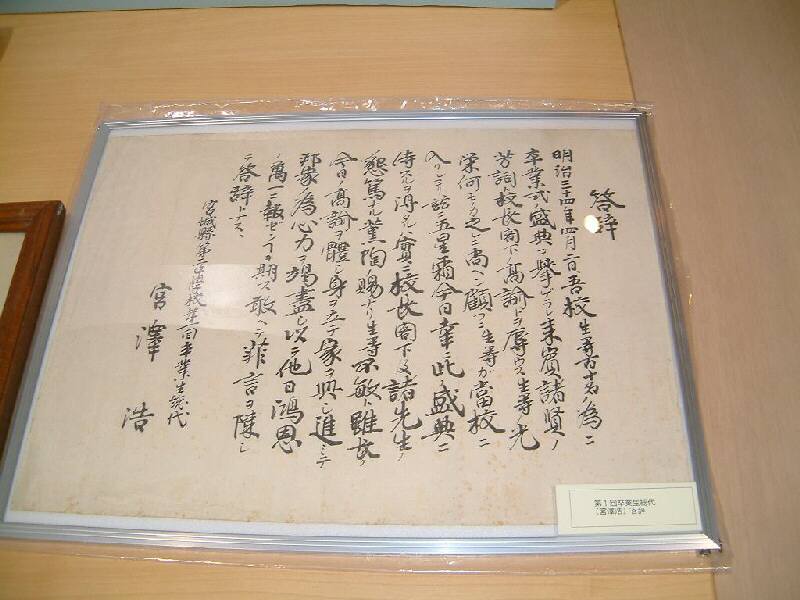 答辞
明治三十四年四月二日吾校生等百十名ノ為ニ
卒業式ノ盛典ヲ擧ゲラレ来賓諸賢ノ
芳詞校長閣下ノ高諭ヲ辱ウス生等ノ光
栄何モノカ之ニ尚ヘン顧フニ生等ガ當校ニ
入リシヨリ茲ニ五星霜今日幸ニ此ノ盛典ニ
侍スルヲ得タルハ實ニ校長閣下及諸先生ノ
懇篤ナル薫陶ノ賜ナリ生等不敏ト雖モ
今日ノ高諭ヲ體シ身ヲ立テ家ヲ興シ進ミテ
邦家ノ為心力ヲ竭盡シ以テ他日鴻恩ノ
萬一ニ報ゼンコトヲ期ス敢ヘテ菲言ヲ陳シ
テ答辞トナス
宮城縣第二中學校第一回卒業生総代
宮澤浩
第1回卒業生総代
(宮澤浩) 答辞